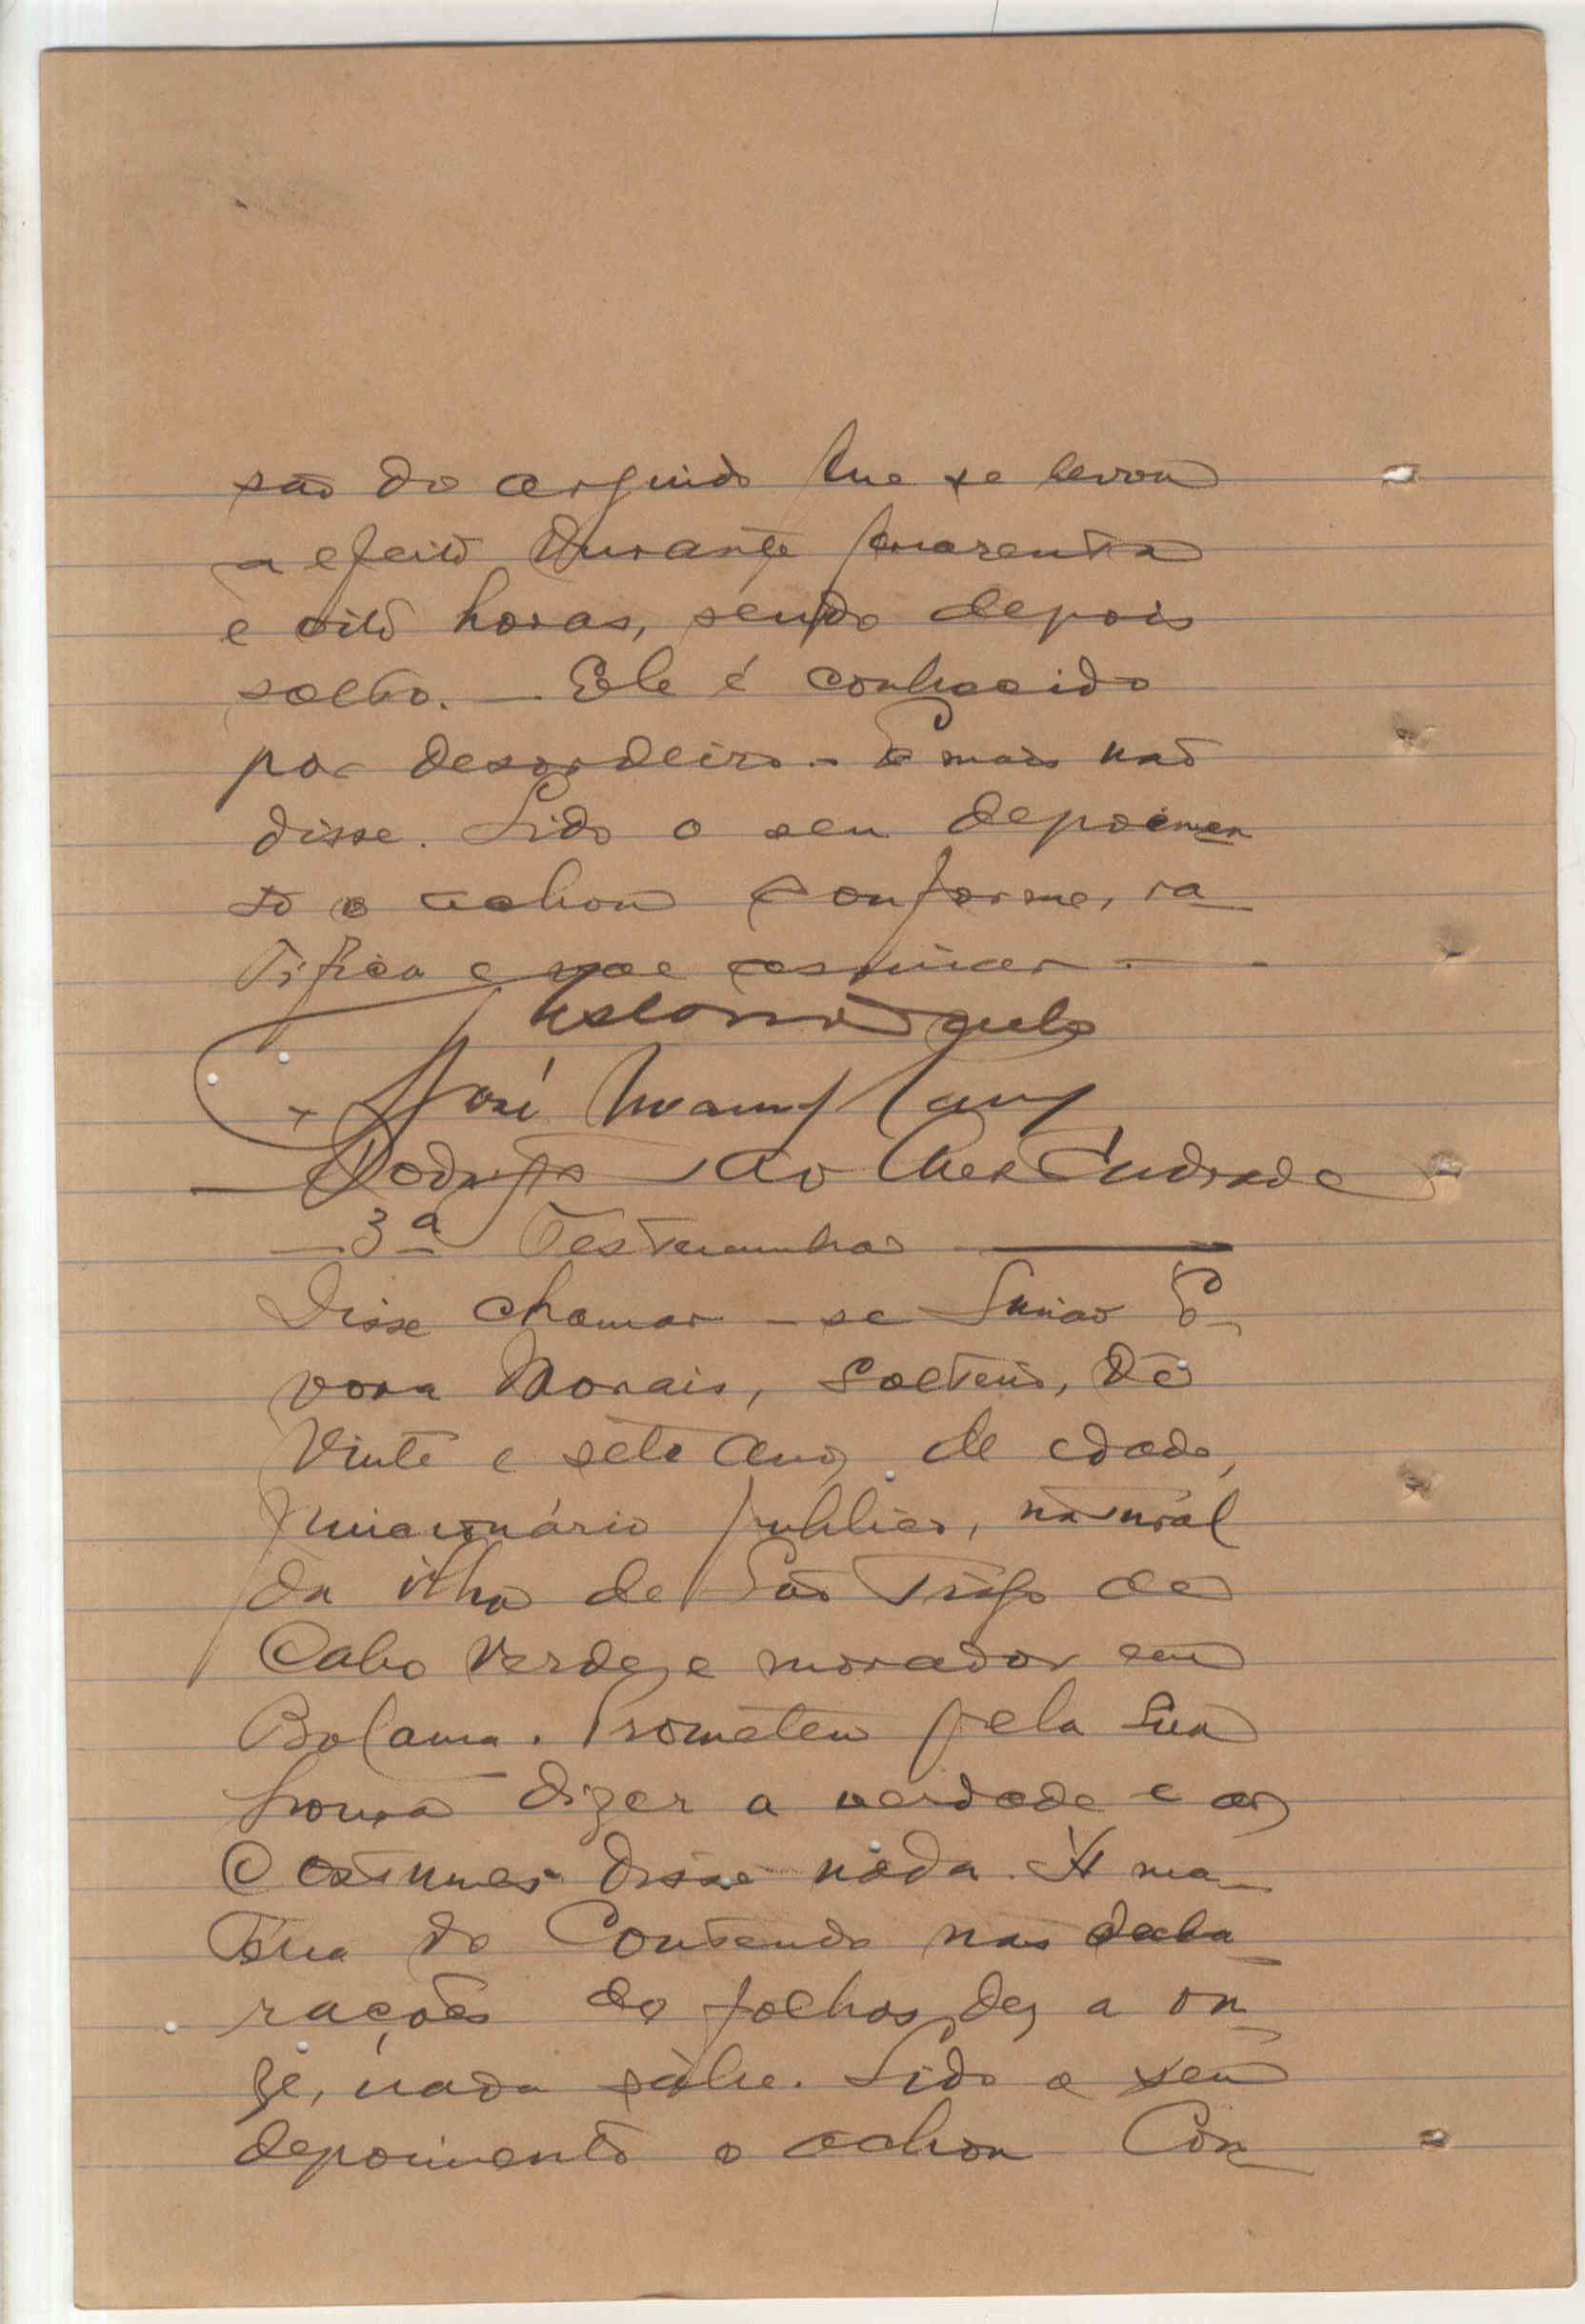 são do arguido que se levou
a efeito durante quarenta
e oito horas, sendo depois
solto. — Ele é conhecido
por desordeiro. — E mais não
disse. Lido o seu depoimen
to o achou conforme, ra
tifica e vae assinar — -
José
Rodrigo Andrade
— 3ª Testemunha —
Disse chamar-se E
vora Morais, solteiro, de
vinte e sete anos de edade,
funcionário publico, natural
da ilha de São Tiago de
Cabo Verde, e morador em
Bolama. Prometeu pela sua
honra dizer a verdade e aos
costumes disse nada. Á ma-
téria do contendo nas decla-
rações de folhas dez a on-
ze, nada sabe. Lido o seu
depoimento o achou con-